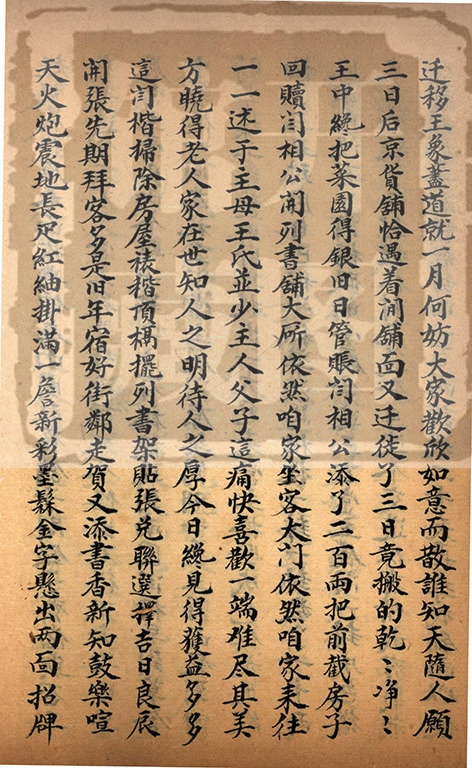 迁移王象藎道就一月何妨大家歡欣如意而散誰知天隨人願
三日后京貨舖恰遇着湏舖面又迁徒了三日竟搬的乾〻净〻
王中纔把菜園得銀旧日管賬闫相公添了二百両把前截房子
回贖闫相公開列書舖大所依然咱家坐客大门依然咱家来往
一一述于主母王氏並少主人父子這痛快喜歡一端难尽其美
方曉得老人家在世知人之明待人之厚今日纔見得獲益多多
這闫楷掃除房屋裱楷頂槅擺列書架貼張兑聯選擇吉日良辰
開張先期拜客多是旧年宿好街鄰走賀又添書香新知鼓樂喧
天火炮震地長尺紅紬掛満一簷新彩墨髹金字懸出两面招牌